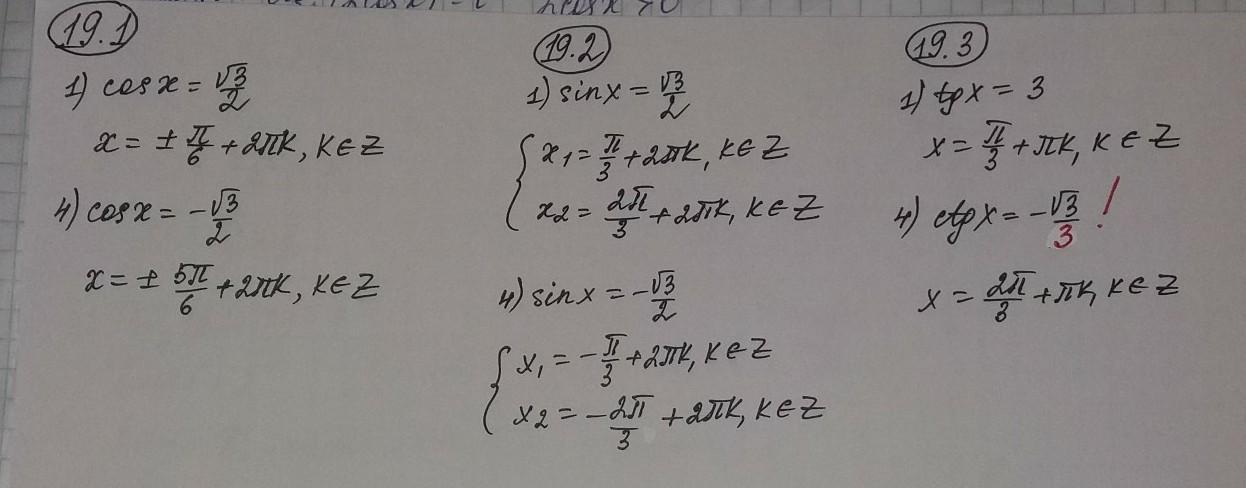 19.1
1) cos x = √3/2
x = ± π/6 + 2πk, k ∈ Z
4) cos x = -√3/2
x = ± 5π/6 + 2πk, k ∈ Z
19.2
1) sin x = √3/2
{ x₁ = π/3 + 2πk, k ∈ Z
x₂ = 2π/3 + 2πk, k ∈ Z
4) sin x = -√3/2
{ x₁ = -π/3 + 2πk, k ∈ Z
x₂ = -2π/3 + 2πk, k ∈ Z
19.3
1) tg x = 3
x = π/3 + πk, k ∈ Z
4) ctg x = -√3/3 !
x = 2π/3 + πk, k ∈ Z